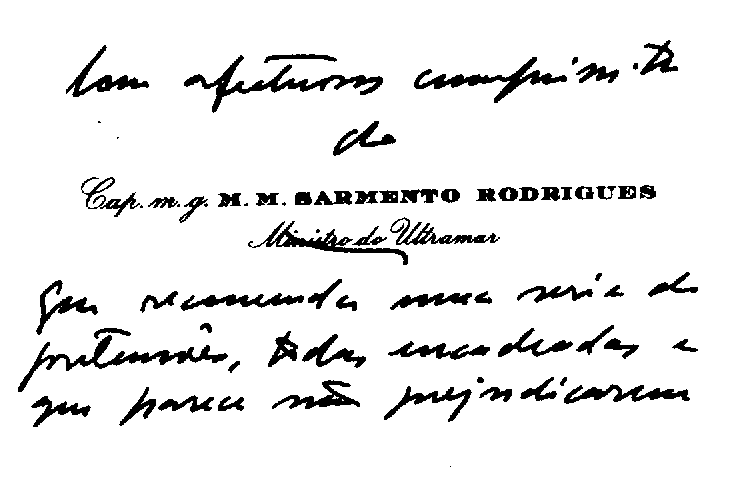 Com afectuosos cumprim.tos
do
Cap. m. g. M. M. SARMENTO RODRIGUES
Ministro do Ultramar
que recomenda uma serie de
pretensões, todas encadeadas e
que parece não prejudicarem